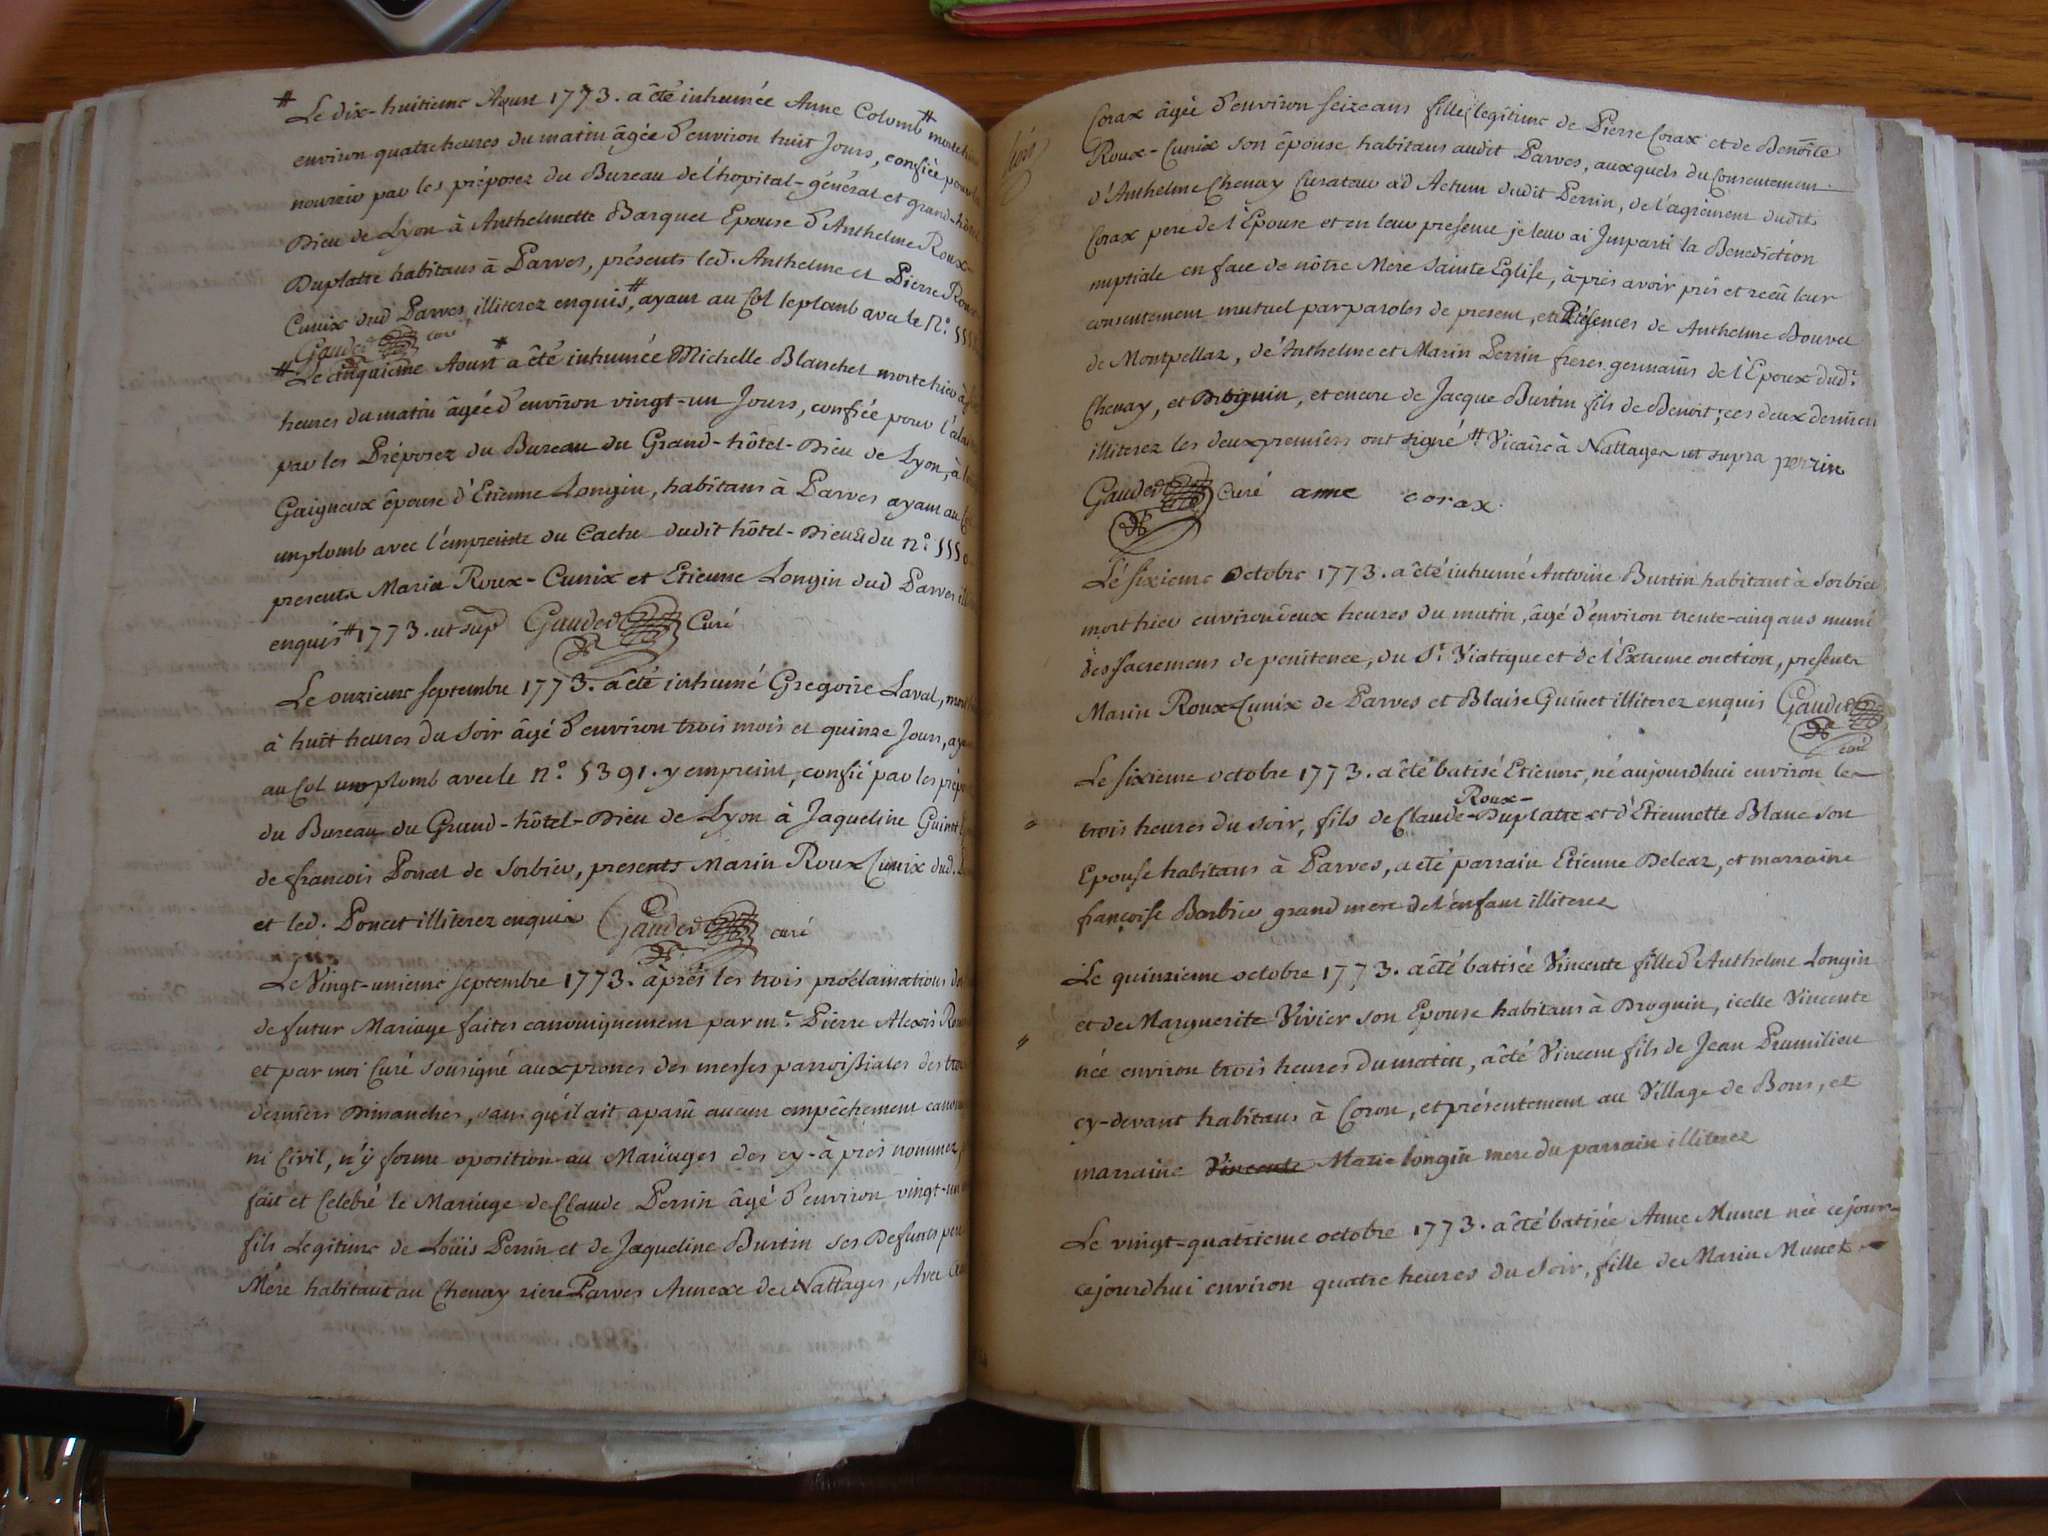 # Le dix-huitieme Aoust 1773. a êté inhumée Anne Colomb # morte hier
environ quatre heures du matin âgée d'environ huit Jours, confiée pour
nourrir par les préposez du Bureau de l'hopital-général et grand-hôtel
Dieu de Lyon à Anthelmette Barquet Epouse d'Anthelme Roux-
Duplatre habitans à Parves, présents led. Anthelme et Pierre Roux
Cunix dud Parves illiterez enquis, # ayant au Col le plomb avec le N.º
Gauder curé
# Le cinquieme Aoust # a êté inhumée Michelle Blanchet morte hier à
heures du matin âgée d'environ vingt-un Jours, confiée pour
par les Préposez du Bureau du Grand-hôtel-Dieu de Lyon, à
Gaigneux épouse d'Etienne Longin, habitans à Parves ayant au
un plomb avec l'empreinte du Cachet dudit hôtel-Dieu & du n.º
presents Marin Roux-Cunix et Etienne Longin dud Parves
enquis # 1773. ut sup. Gauder Curé
Le onzieme septembre 1773. a été inhumé Gregoire Laval, mort
à huit heures du soir âgé d'environ trois mois et quinze Jours,
au Col un plomb avec le n.º 5391. y empreint, confié par les
du Bureau du Grand-hôtel-Dieu de Lyon à Jaqueline Guinet
de françois Poncet de Sorbier, presents Marin Roux Cunix dud.
et led. Poncet illiterez enquis Gauder curé
Le Vingt-unieme septembre 1773. après les trois proclamations
de futur Mariage faites canoniquement par m.e Pierre Alexis
et par moi Curé sousigné aux prones des messes parroissiales des
derniers Dimanches, sans qu'il ait aparû aucun empêchement
ni Civil, n'y forme oposition au Mariages des cy-après nommez,
fait et Celebré le Mariage de Claude Perrin âgé d'environ vingt-un
fils Legitime de Loüis Perrin et de Jaqueline Burtin ses Defunts
Mère habitant au Chenay riere Parves Annexe de Nattages, Avec
Corax âgée d'environ seize ans fille legitime de Pierre Corax et de Benoîte
Roux-Cunix son épouse habitans audit Parves, auxquels du Consentement
d'Anthelme Chenay Curateur ad Actum dudit Perrin, de l'agrément dudit
Corax pere de l'Epouse et en leur presence je leur ai Imparti la Benediction
nuptiale en face de nôtre Mere Sainte Eglise, après avoir pris et reçû leur
consentement mutuel par paroles de present, et Présences de Anthelme Bouvet
de Montpellaz, de Anthelme et Marin Perrin freres germains de l'Epoux dud.t
Chenay, et Droguin, et encore de Jacque Burtin fils de Benoit, ces deux derniers
illiterez les deux premiers ont signé # Vicaire à Nattages ut supra perrin
Gauder Curé anne corax.
Le sixieme octobre 1773. a été inhumé Antoine Burtin habitant à Sorbier
mort hier environ deux heures du matin, âgé d'environ trente-cinq ans muni
des sacremens de penitence, du S.t Viatique et de l'Extreme onction, presents
Marin Roux Cunix de Parves et Blaise Guinet illiterez enquis Gauder
curé
Le sixieme octobre 1773. a été batisé Etienne, né aujourdhui environ les
Roux-
trois heures du soir, fils de Claude-Duplatre et d'Etiennette Blanc son
Epouse habitans à Parves, a été parrain Etienne Deleaz, et marraine
françoise Borbier grand mere de l'enfant illiterez
Le quinzieme octobre 1773. a êté batisée Vincente fille d'Anthelme Longin
et de Marguerite Vivier son Epouse habitans à Droguin, icelle Vincente
née environ trois heures du matin, a êté Vincent fils de Jean Pramilieu
cy-devant habitans à Coron, et présentement au Village de Bons, et
marraine Vincente Marie longin mere du parrain illiterez
Le vingt-quatrieme octobre 1773. a êté batisée Anne Munet née cejour-
cejourdhui environ quatre heures du soir, fille de Marin Munet